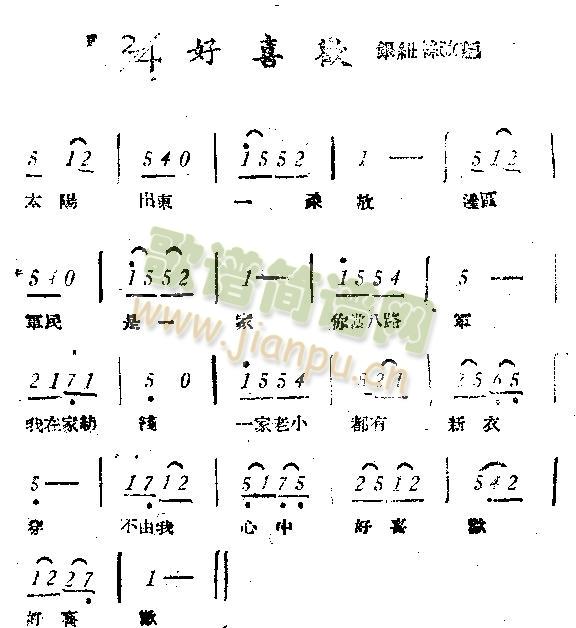 2/4 好喜歡 銀紐絲改編
5 12 | 540 | 1552 | 1 — | 512 |
太陽 出東 一 放 邊區
540 | 1552 | 1 — | 1554 | 5 —
軍民 是一 家 你當八路 軍
2171 | 5 0 | 1554 | 521 | 2565
我在家紡 綫 一家老小 都有 新衣
5 — | 1712 | 5175 | 2512 | 542
穿 不由我 心中 好喜 歡
1227 | 1 — ||
好喜 歡
歌谱简谱网
www.jianpu.cn